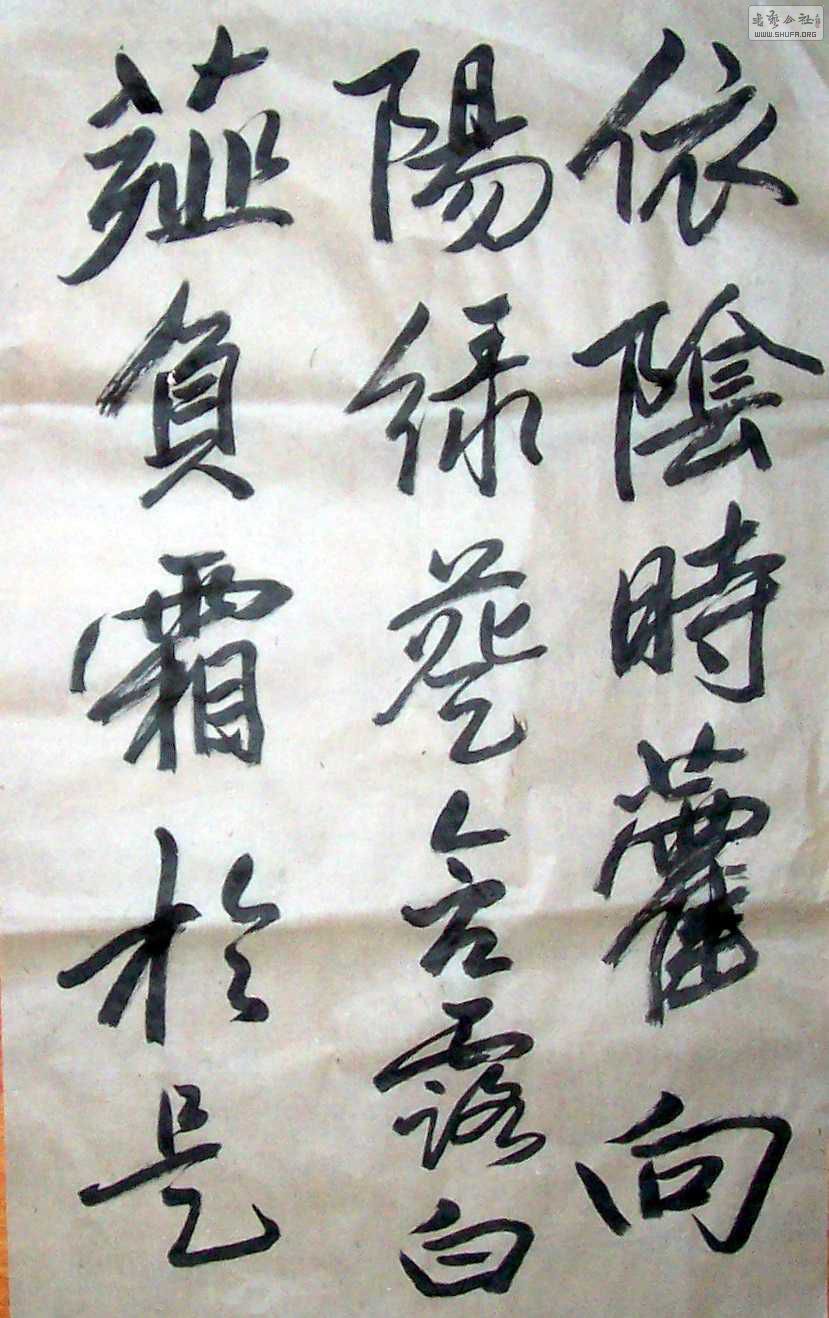 依陰時藿向
陽綠葵含露白
薤負霜於是
书艺公社
WWW.SHUFA.ORG